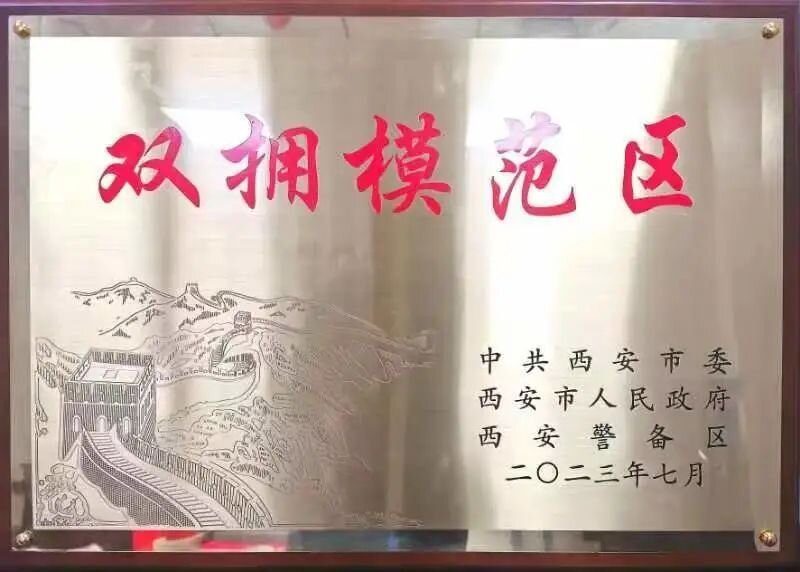 双拥模范区
中共西安市委
西安市人民政府
西安警备区
二〇二三年七月